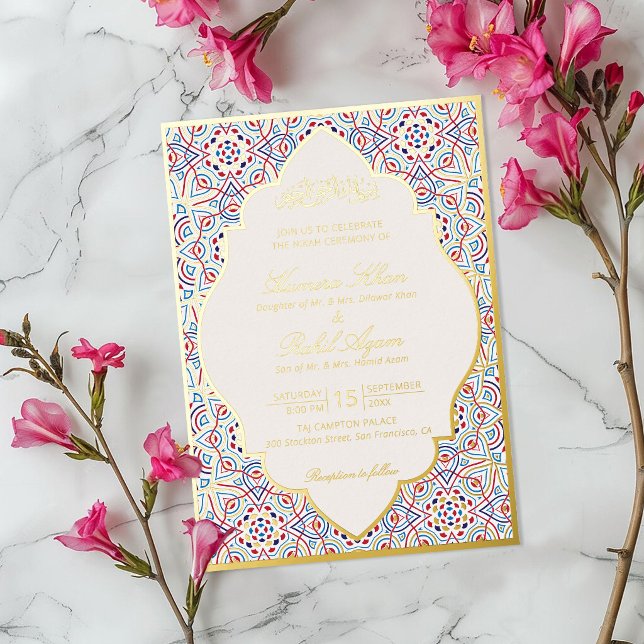 بسم الله الرحمن الرحيم
JOIN US TO CELEBRATE
THE NIKAH CEREMONY OF
Humera Khan
Daughter of Mr. & Mrs. Dilawar Khan
&
Rahil Azam
Son of Mr. & Mrs. Hamid Azam
SATURDAY 15 SEPTEMBER
8:00 PM 20XX
TAJ CAMPTON PALACE
300 Stockton Street, San Francisco, CA
Reception to follow